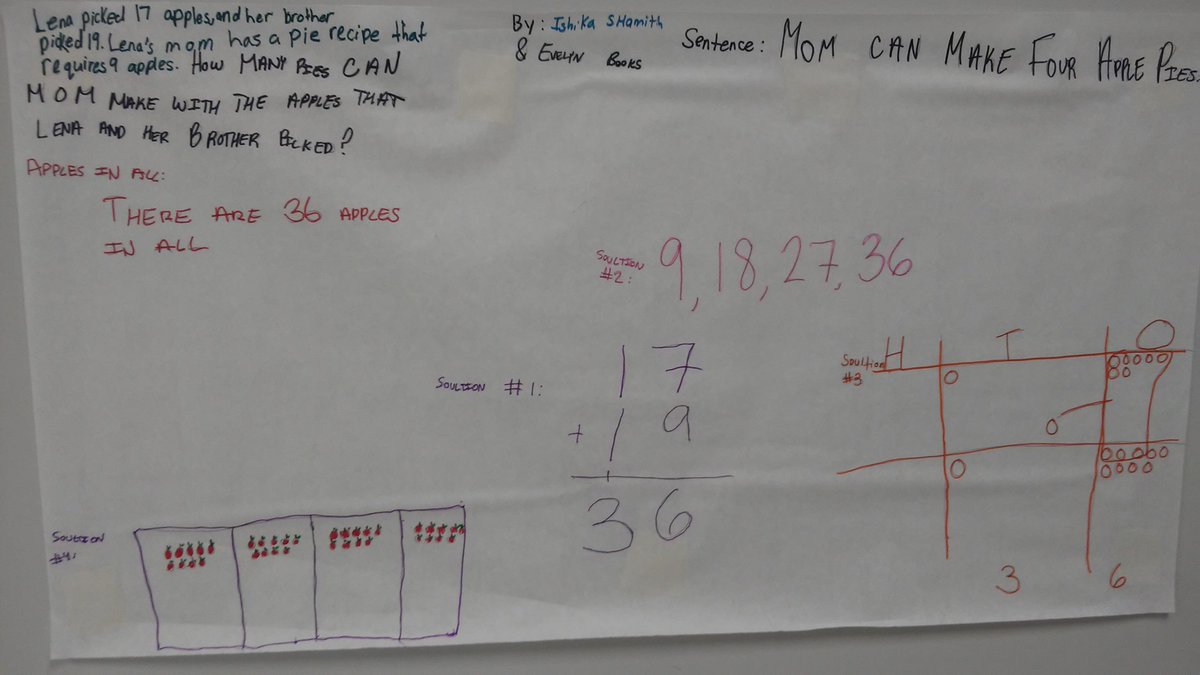 Lena picked 17 apples, and her brother
picked 19. Lena's mom has a pie recipe that
requires 9 apples. How MANY PIES CAN
MOM MAKE WITH THE APPLES THAT
LENA AND HER BROTHER PICKED?
By: Ishika SHamith
& EVELYN BOOKS
Sentence: MOM CAN MAKE FOUR APPLE PIES.
APPLES IN ALL:
THERE ARE 36 APPLES
IN ALL
SOULTION
#2:
9, 18, 27, 36
SOULTION #1:
17
+ 19
36
Soultion
#3
H T O
3 6
SOULTION
#4: